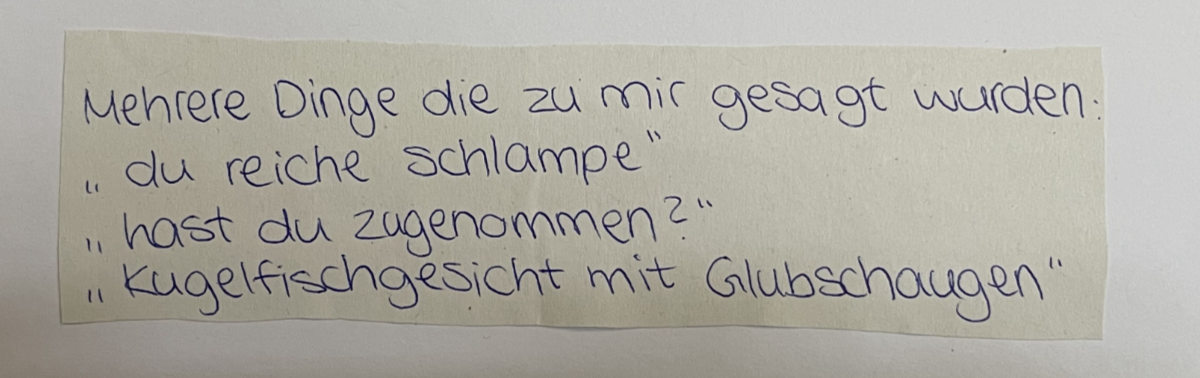 Mehrere Dinge die zu mir gesagt wurden:
„du reiche schlampe“
„hast du zugenommen?“
„Kugelfischgesicht mit Glubschaugen“